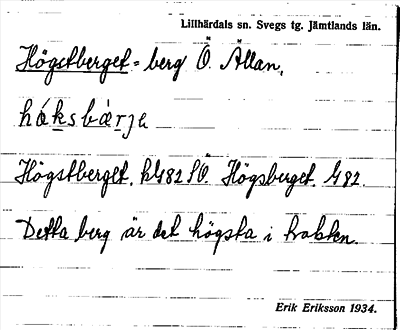 Lillhärdals sn. Svegs tg. Jämtlands län.
Högstberget = berg Ö. Ällan,
håksbærje
Högstberget, k482 SÖ. Högsberget. 482.
Detta berg är det högsta i trakten.
Erik Eriksson 1934.